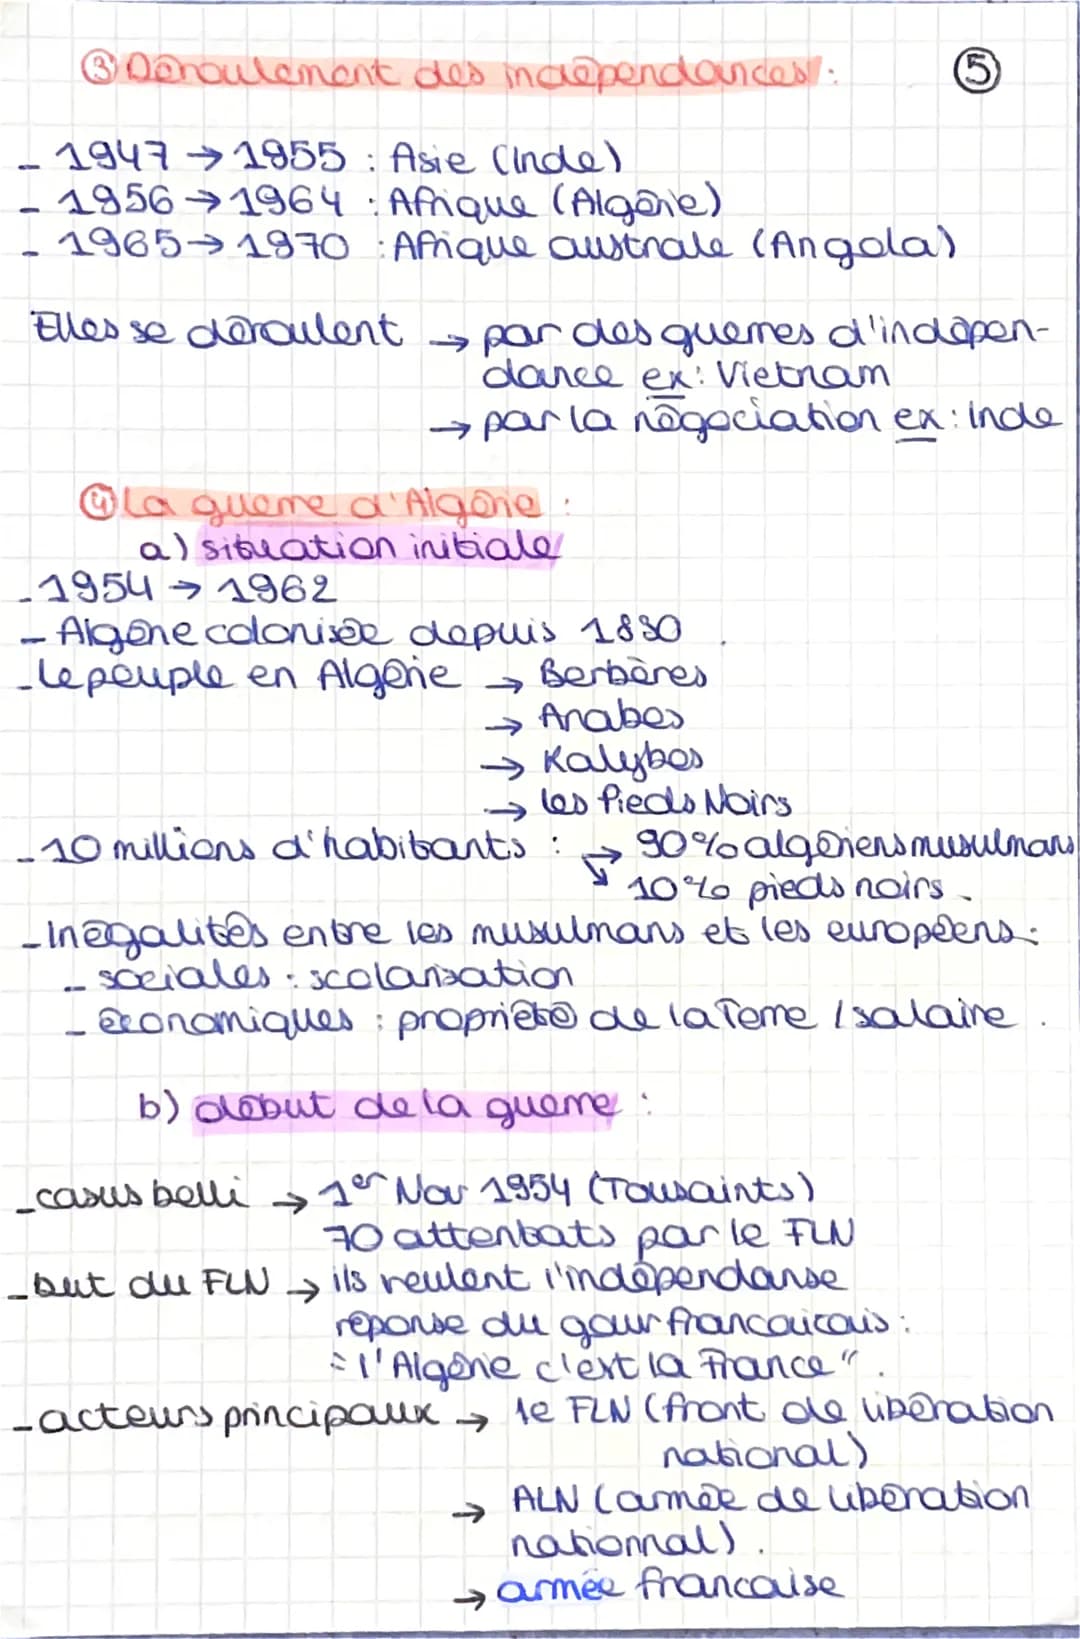 ③ Déroulement des indépendances : ⑤
- 1947 → 1955 : Asie (Inde)
- 1956 → 1964 : Afrique (Algérie)
- 1965 → 1970 : Afrique australe (Angola)
Elles se déroulent → par des guerres d'indépen-
dance ex : Vietnam
→ par la négociation ex : Inde
④ La guerre d'Algérie :
a) situation initiale
- 1954 → 1962
- Algérie colonisée depuis 1830.
- le peuple en Algérie → Berbères
→ Arabes
→ Kalybes
→ les Pieds Noirs
- 10 millions d'habitants : → 90% algériens musulmans
↘ 10% pieds noirs.
- Inégalités entre les musulmans et les européens :
- sociales : scolarisation
- économiques : propriété de la Terre / salaire.
b) début de la guerre :
- casus belli → 1er Nov 1954 (Tousaints)
70 attentats par le FLN
- but du FLN → ils veulent l'indépendanse
réponse du gour francaicais :
= l'Algérie c'est la France".
- acteurs principaux → le FLN (front de libération
national)
→ ALN (armée de libération
nationnal).
→ armée francaise